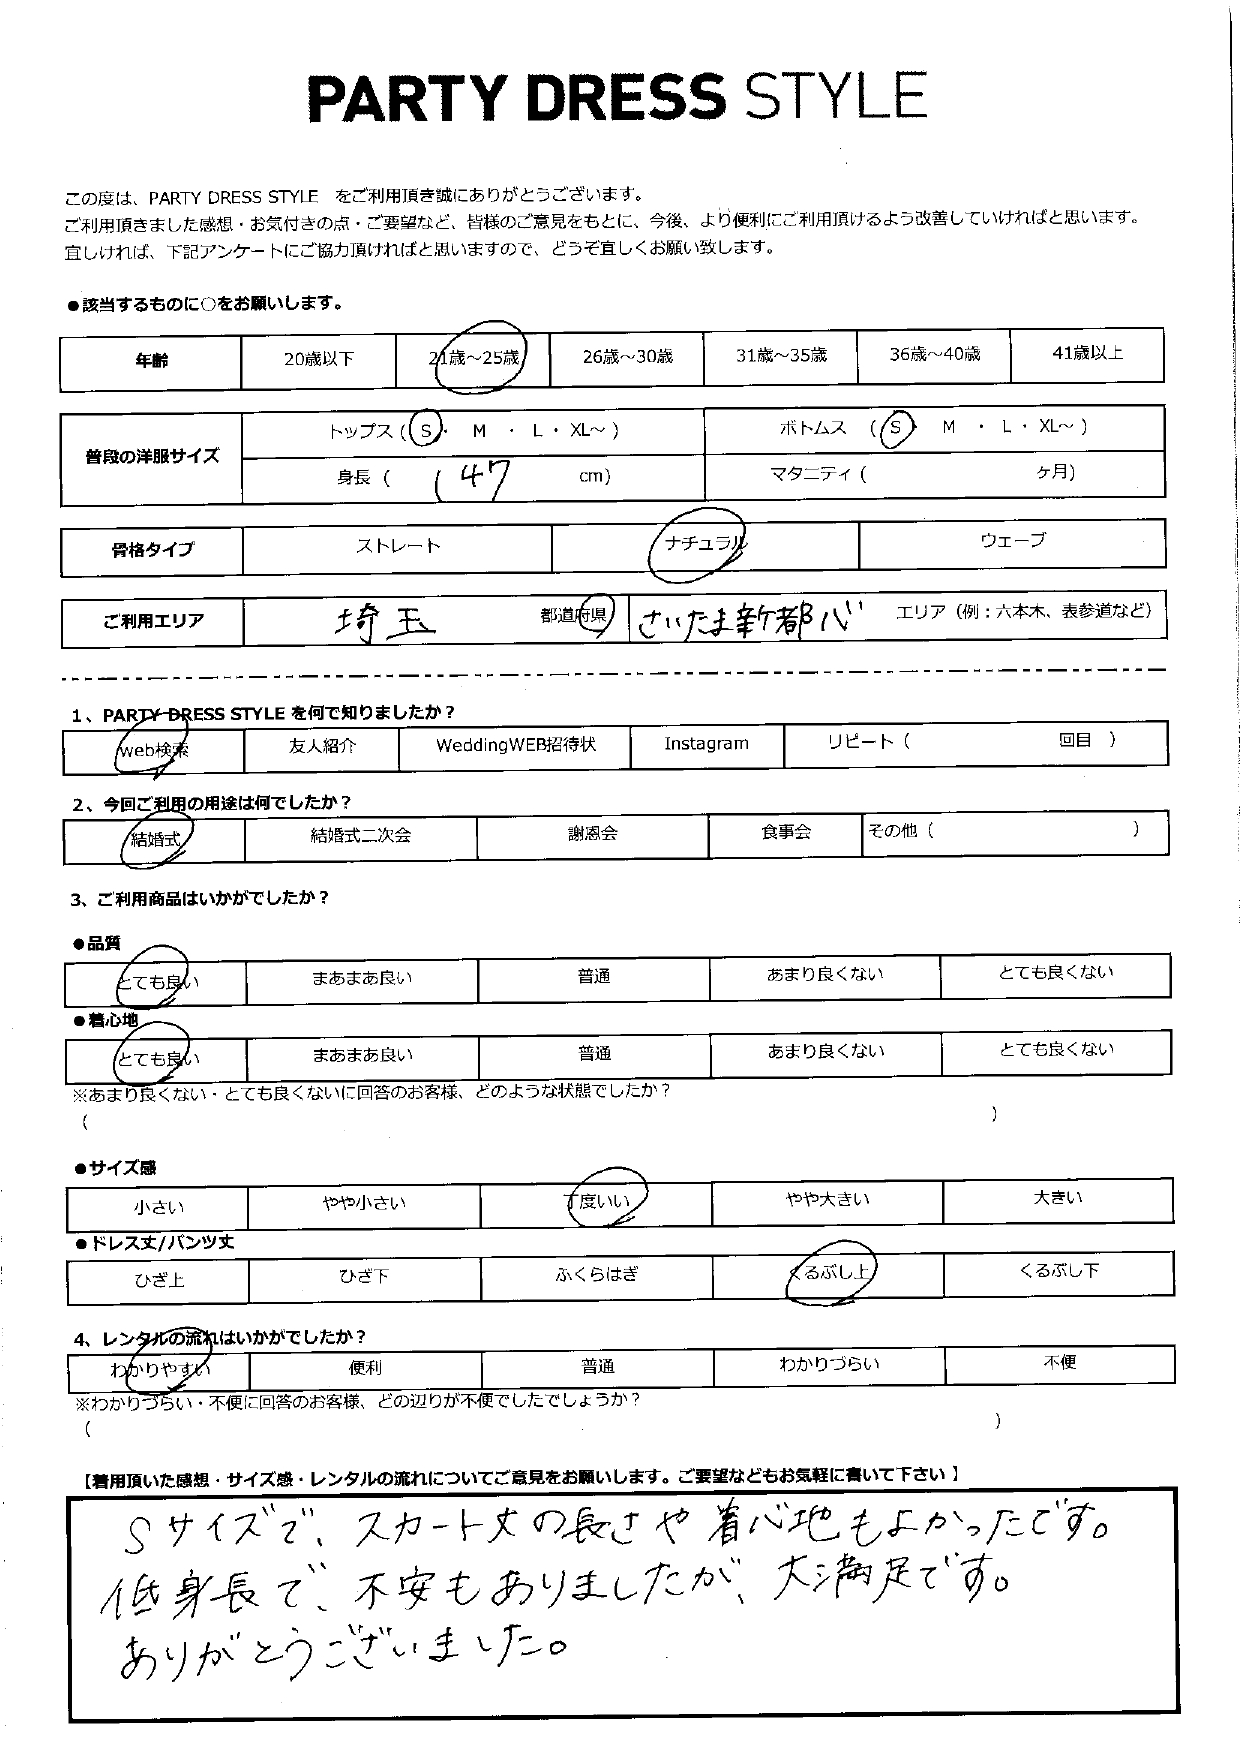 PARTY DRESS STYLE
この度は、PARTY DRESS STYLE をご利用頂き誠にありがとうございます。
ご利用頂きました感想・お気付きの点・ご要望など、皆様のご意見をもとに、今後、より便利にご利用頂けるよう改善していければと思います。
宜しければ、下記アンケートにご協力頂ければと思いますので、どうぞ宜しくお願い致します。
●該当するものに○をお願いします。
年齢 20歳以下 21歳～25歳 26歳～30歳 31歳～35歳 36歳～40歳 41歳以上
普段の洋服サイズ トップス (S・ M ・ L・ XL～ ) ボトムス (S・ M ・ L・ XL～ )
身長 ( 147 cm) マタニティ ( ヶ月)
骨格タイプ ストレート ナチュラル ウェーブ
ご利用エリア 埼玉 都道府県 さいたま新都心 エリア（例：六本木、表参道など）
1、PARTY DRESS STYLE を何で知りましたか？
web検索 友人紹介 WeddingWEB招待状 Instagram リピート ( 回目 )
2、今回ご利用の用途は何でしたか？
結婚式 結婚式二次会 謝恩会 食事会 その他 ( )
3、ご利用商品はいかがでしたか？
●品質
とても良い まあまあ良い 普通 あまり良くない とても良くない
●着心地
とても良い まあまあ良い 普通 あまり良くない とても良くない
※あまり良くない・とても良くないに回答のお客様、どのような状態でしたか？
( )
●サイズ感
小さい やや小さい 丁度いい やや大きい 大きい
●ドレス丈/パンツ丈
ひざ上 ひざ下 ふくらはぎ くるぶし上 くるぶし下
4、レンタルの流れはいかがでしたか？
わかりやすい 便利 普通 わかりづらい 不便
※わかりづらい・不便に回答のお客様、どの辺りが不便でしたでしょうか？
( )
【着用頂いた感想・サイズ感・レンタルの流れについてご意見をお願いします。ご要望などもお気軽に書いて下さい 】
Sサイズで、スカート丈の長さや着心地もよかったです。
低身長で、不安もありましたが、大満足です。
ありがとうございました。